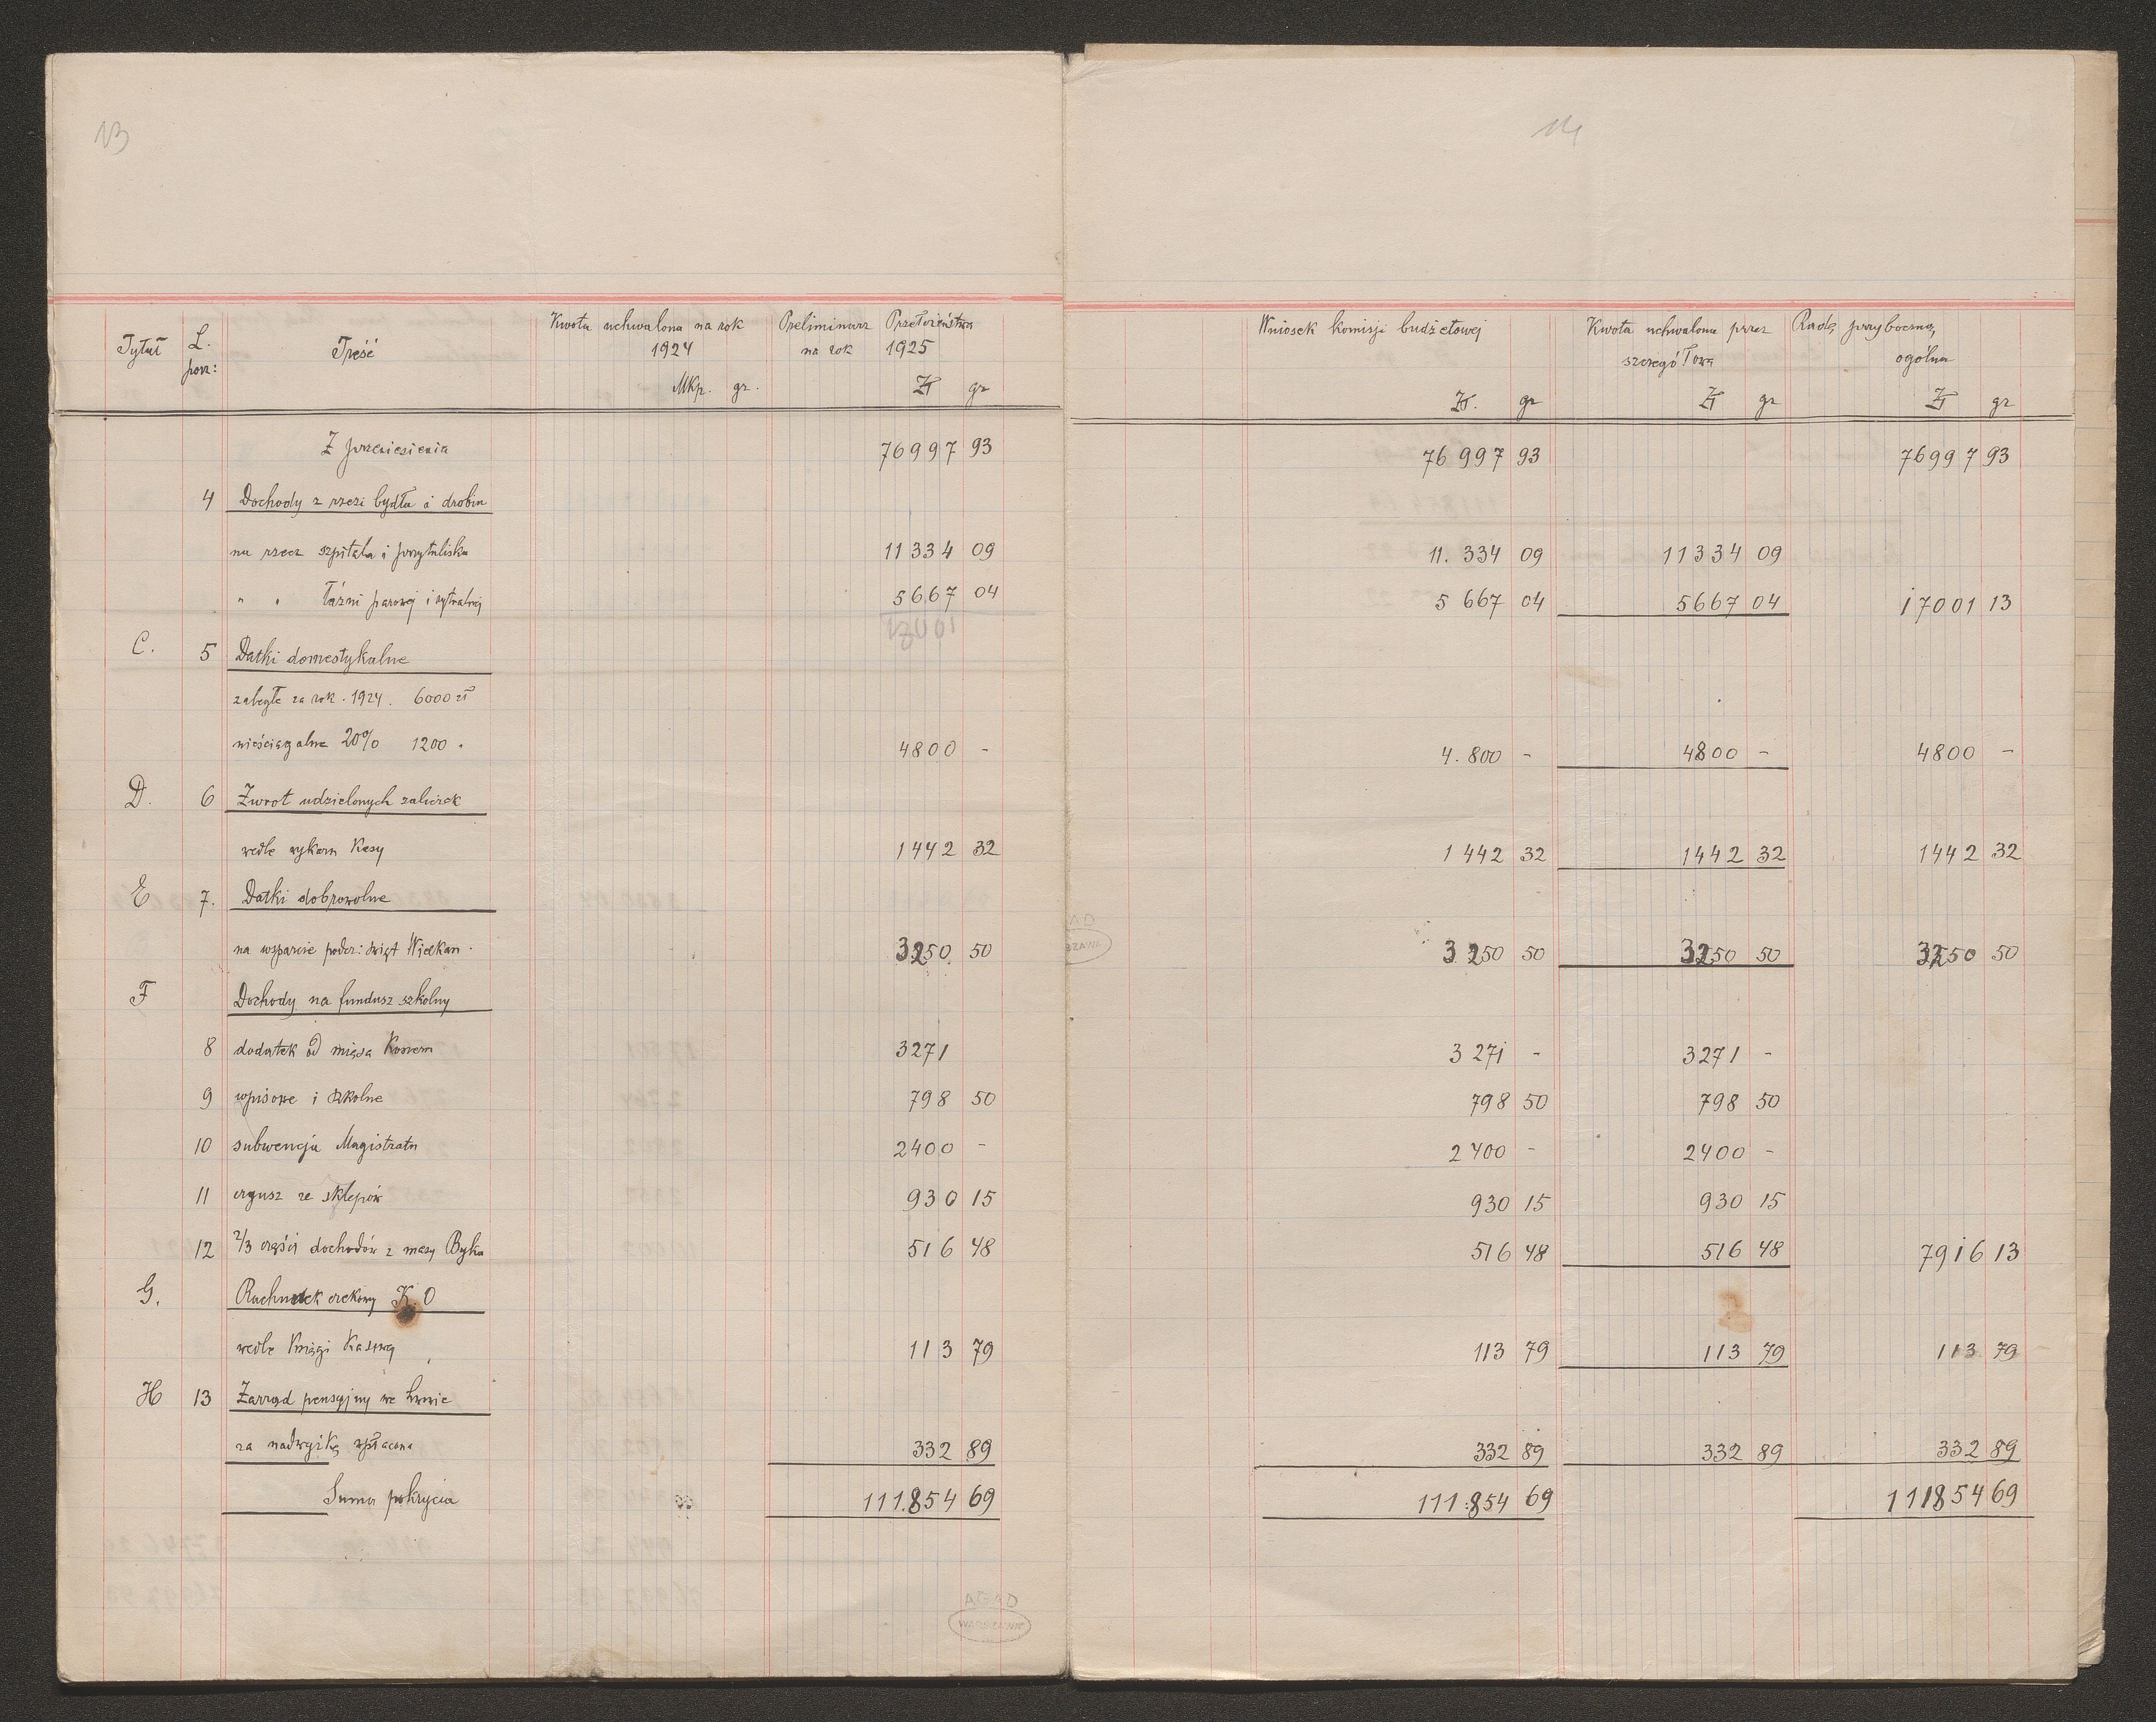 13
Tytuł L. porz: Treść Kwota uchwalona na rok 1924 Mkp. gr. Preliminarz Przełożeństwa na rok 1925 Zł gr
Z przeniesienia 76997 93
4 Dochody z rzezi bydła i drobiu
na rzecz szpitala i przytuliska 11334 09
" " łaźni parowej i rytualnej 5667 04
17001
C. 5 Datki domestykalne
zaległe za rok. 1924. 6000 zł
nieściągalne 20% 1200 " 4800 -
D. 6 Zwrot udzielonych zaliczek
wedle wykazu Kasy 1442 32
E 7. Datki dobrowolne
na wsparcie podcz: świąt Wielkan. 3250 50
F Dochody na fundusz szkolny
8 dodatek od mięsa Koszern 3271
9 wpisowe i szkolne 798 50
10 subwencja Magistratu 2400 -
11 czynsz ze sklepów 930 15
12 2/3 części dochodów z masy Byka 516 48
G. Rachunek czekowy K.O
wedle Księgi Kasowej 113 79
H 13 Zarząd pensyjny we Lwowie
za nadwyżkę wpłacona 332 89
Suma pokrycia 111.854 69
AGAD
WARSZAWA
14
Wniosek komisji budżetowej Zł. gr Kwota uchwalona przez Radę przyboczną szczegółowa Zł gr ogólna Zł gr
76 997 93 76997 93
11. 334 09 11334 09
5 667 04 5667 04 17001 13
4. 800 - 4800 - 4800 -
1 442 32 1442 32 1442 32
3 250 50 3250 50 3250 50
3 271 - 3271 -
798 50 798 50
2400 - 2400 -
930 15 930 15
516 48 516 48 7916 13
113 79 113 79 113 79
332 89 332 89 332 89
111.854 69 111854 69